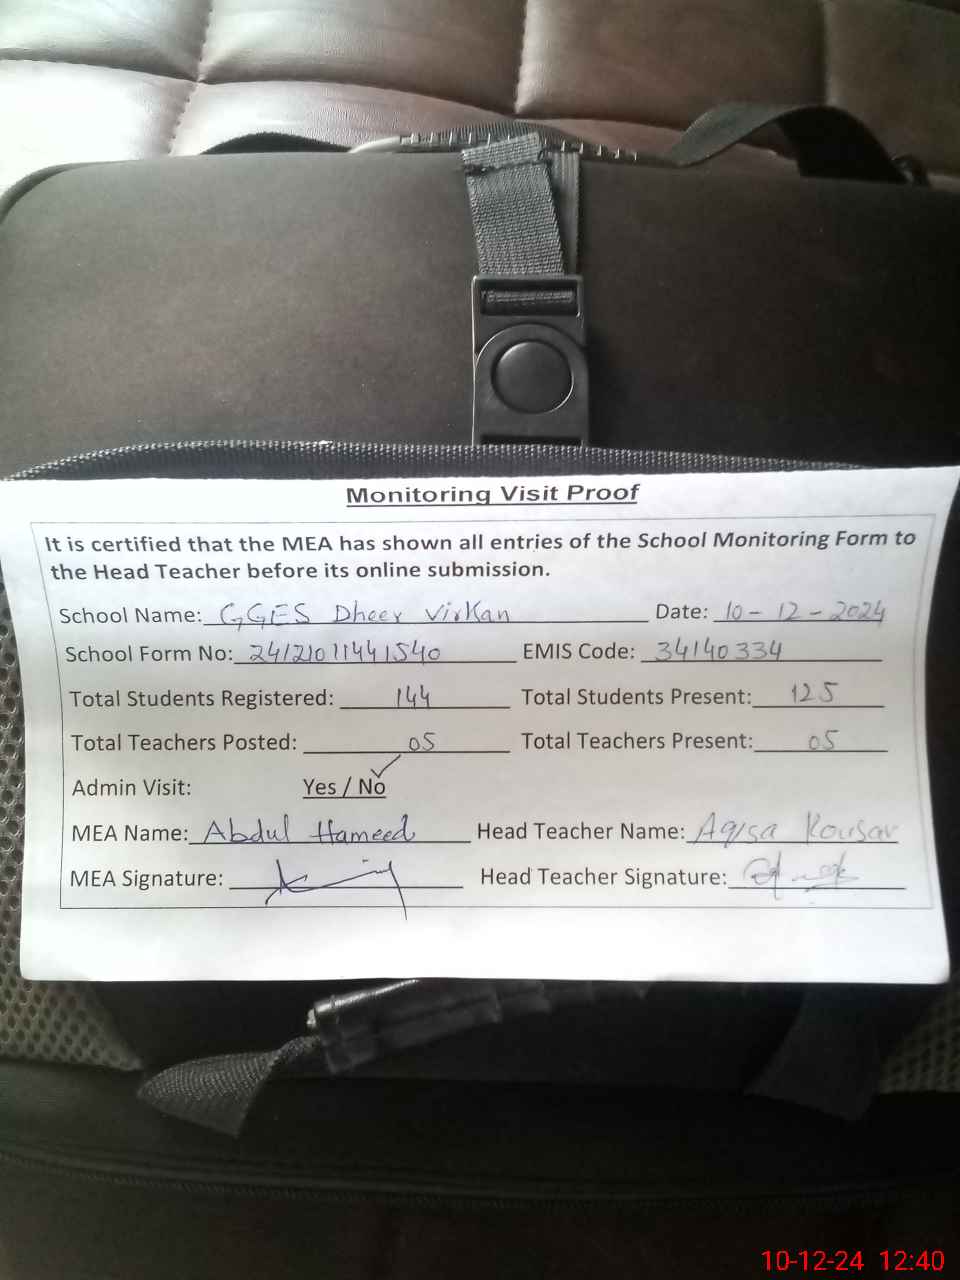 Monitoring Visit Proof
It is certified that the MEA has shown all entries of the School Monitoring Form to
the Head Teacher before its online submission.
School Name: GGES Dheer Virkan Date: 10-12-2024
School Form No: 24121011441540 EMIS Code: 34140334
Total Students Registered: 144 Total Students Present: 125
Total Teachers Posted: 05 Total Teachers Present: 05
Admin Visit: Yes / No
MEA Name: Abdul Hameed Head Teacher Name: Aqsa Kousar
MEA Signature: Head Teacher Signature:
10-12-24 12:40